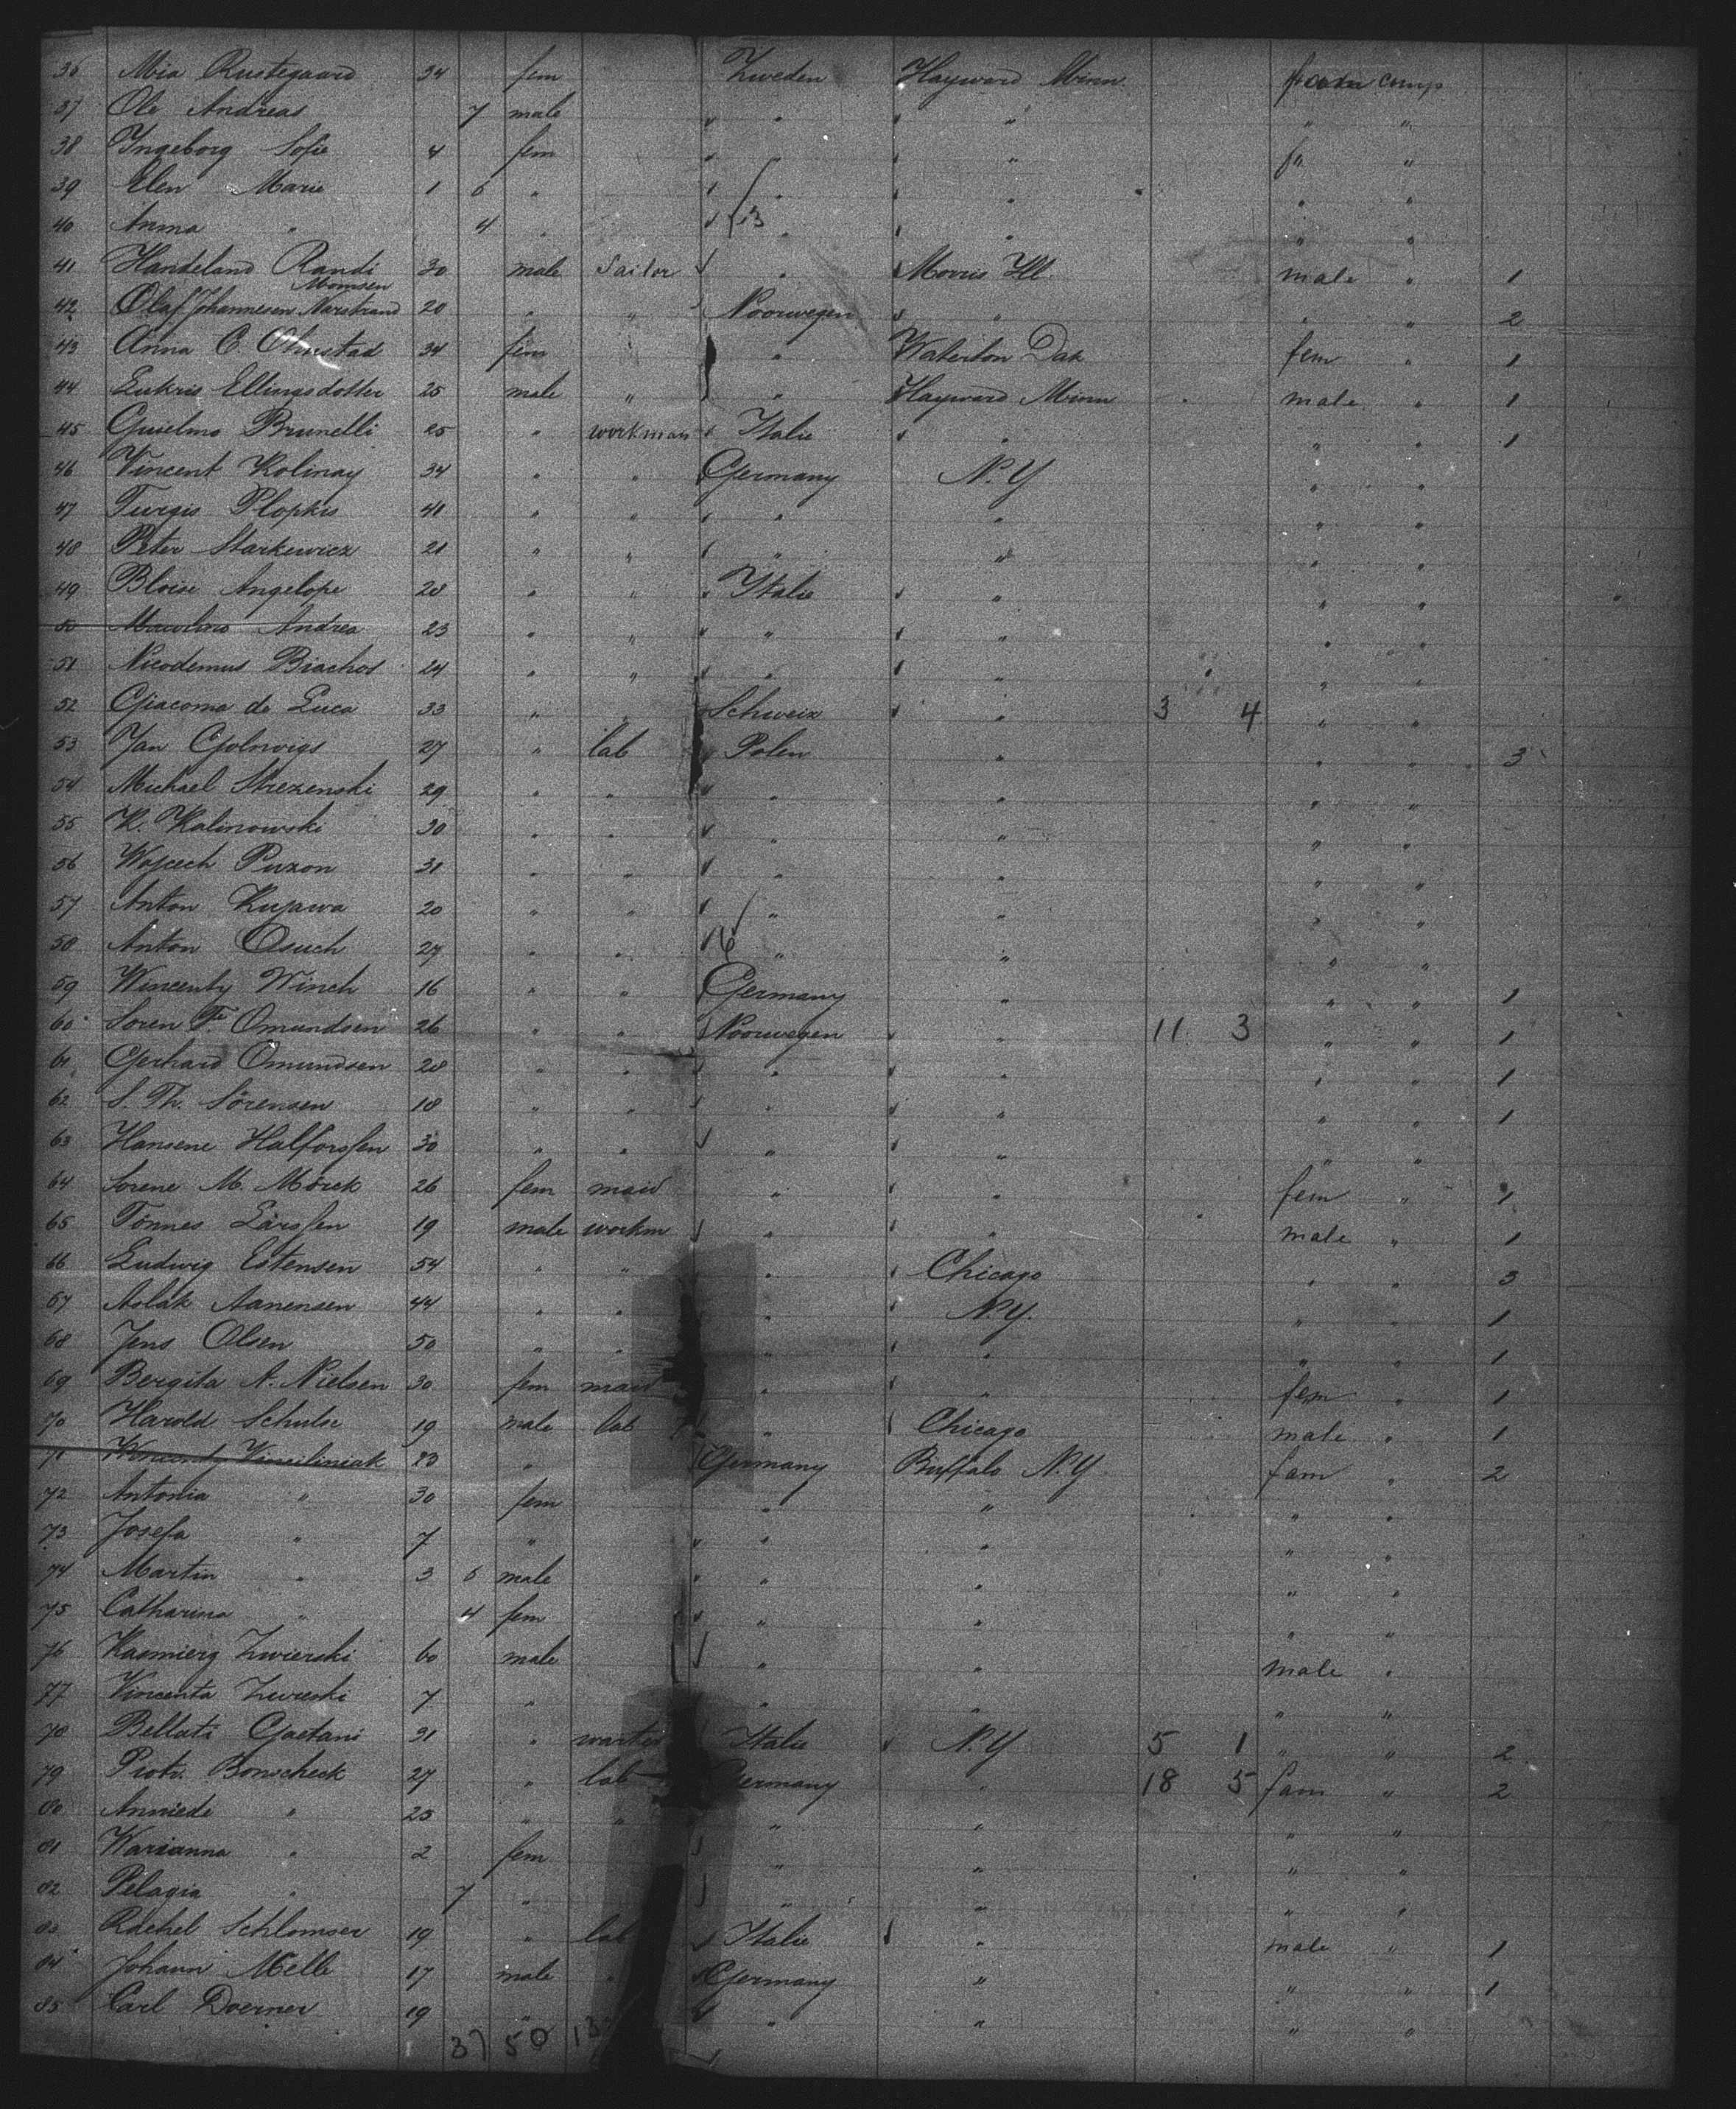 36 Mia Rustegaard 34 fem Zweden Hayward Minn. comp
37 Ole Andreas 7 male " " " "
38 Ingeborg Sofie 4 fem " " " "
39 Elen Marie 1 6 " " " " "
40 Anna " 4 " 13 " " " "
41 Handeland Randi 30 male Sailor " Morris Ill. male " 1
Momsen
42 Olaf Johannesen Narstrand 20 " " Noorwegen " " " 2
43 Anna C. Olmstad 34 fem " Waterton Dak fem " 1
44 Ellingsdotter 25 male " " Hayward Minn male " 1
45 Guielmo Brunelli 25 " workman Italie " " " 1
46 Vincent Kolinay 34 " " Germany N.Y " "
47 Turgis Plopkis 41 " " " " " "
48 Peter Starkewicz 21 " " " " " "
49 Bloise Angelope 28 " " Italie " " "
50 Andrea 23 " " " " " "
51 Nicodemus Biachos 24 " " " " " "
52 Giacoma de Luca 33 " " Schweiz " 3 4 " "
53 Jan Golnvigs 27 " lab Polen " " " 3
54 Michael Strezenski 29 " " " " " "
55 K. Kalinowski 30 " " " " " "
56 Wojcech Puzon 31 " " " " " "
57 Anton Kujawa 20 " " " " " "
58 Anton Osuch 27 " " 6 " " " "
59 Wincenty Winch 16 " " Germany " " " 1
60 Soren F. Omundsen 26 " " Noorwegen " 11 3 " " 1
61 Gerhard Omundsen 28 " " " " " " 1
62 S. Th. Sörensen 18 " " " " " " 1
63 Hansene Halforssen 30 " " " " " "
64 Sorene M. Mörck 26 fem maid " " fem " 1
65 Tönnes Larssen 19 male workm " " male " 1
66 Ludwig Estensen 54 " " " Chicago " " 3
67 Aslak Aanensen 44 " " " N.Y. " " 1
68 Jens Olsen 50 " " " " " " 1
69 Bergita N. Nielsen 30 fem maid " " fem " 1
70 Harold Schulse 19 male lab " Chicago male " 1
71 23 " Germany Buffalo N.Y. fam " 2
72 Antonia " 30 fem " " " "
73 Josefa " 7 " " " " "
74 Martin " 3 6 male " " " "
75 Catharina " 4 fem " " " "
76 Kasmierz Zwierski 60 male " " male "
77 Vincenta 7 " " " " "
78 Bellati Gaetani 31 " Italie N.Y 5 1 " " 2
79 Piotr. Bonscheck 27 " lab Germany " 18 5 fam " 2
80 Anniede " 25 " " " " " "
81 Warianna " 2 fem " " " "
82 Pelagia " 7 " " " " "
83 Rachel Schlomser 19 " lab Italie " male " 1
84 Johann Melle 17 male " Germany " " " 1
85 Carl Doerner 19 " " " " "
37 50 13